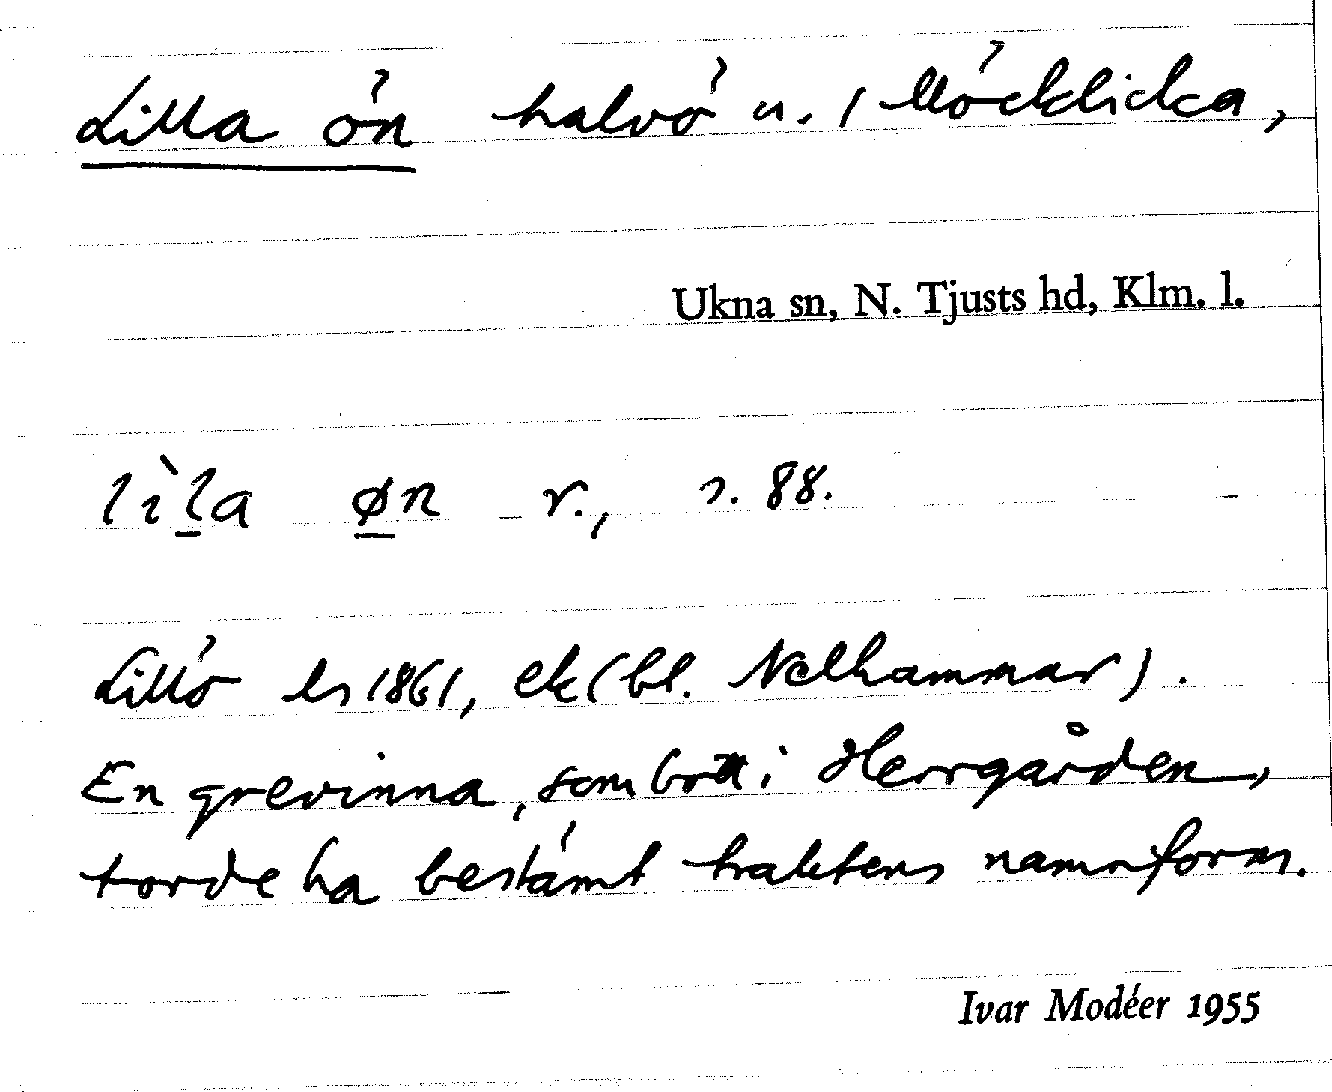 Lilla ön halvö u. / Möcklicka,
Ukna sn, N. Tjusts hd, Klm. l.
lìla øn r., s. 88.
Lillö ls 1861, ek (bl. Nelhammar).
En grevinna, som bott i Herrgården,
torde ha bestämt traktens namnform.
Ivar Modéer 1955